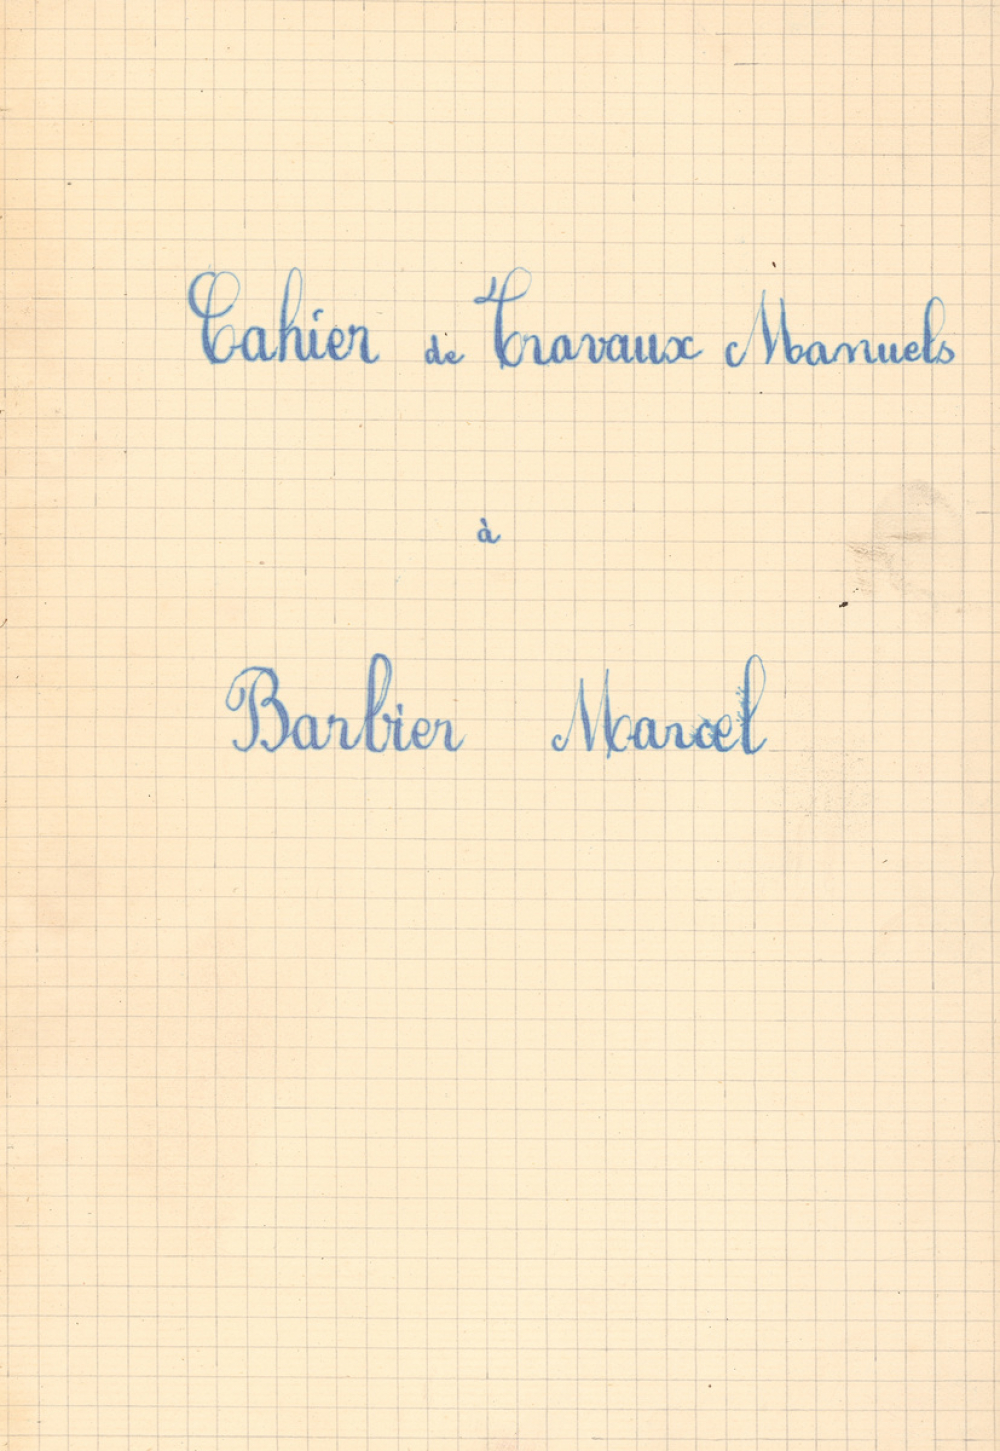 Cahier de Travaux Manuels
à
Barbier Marcel